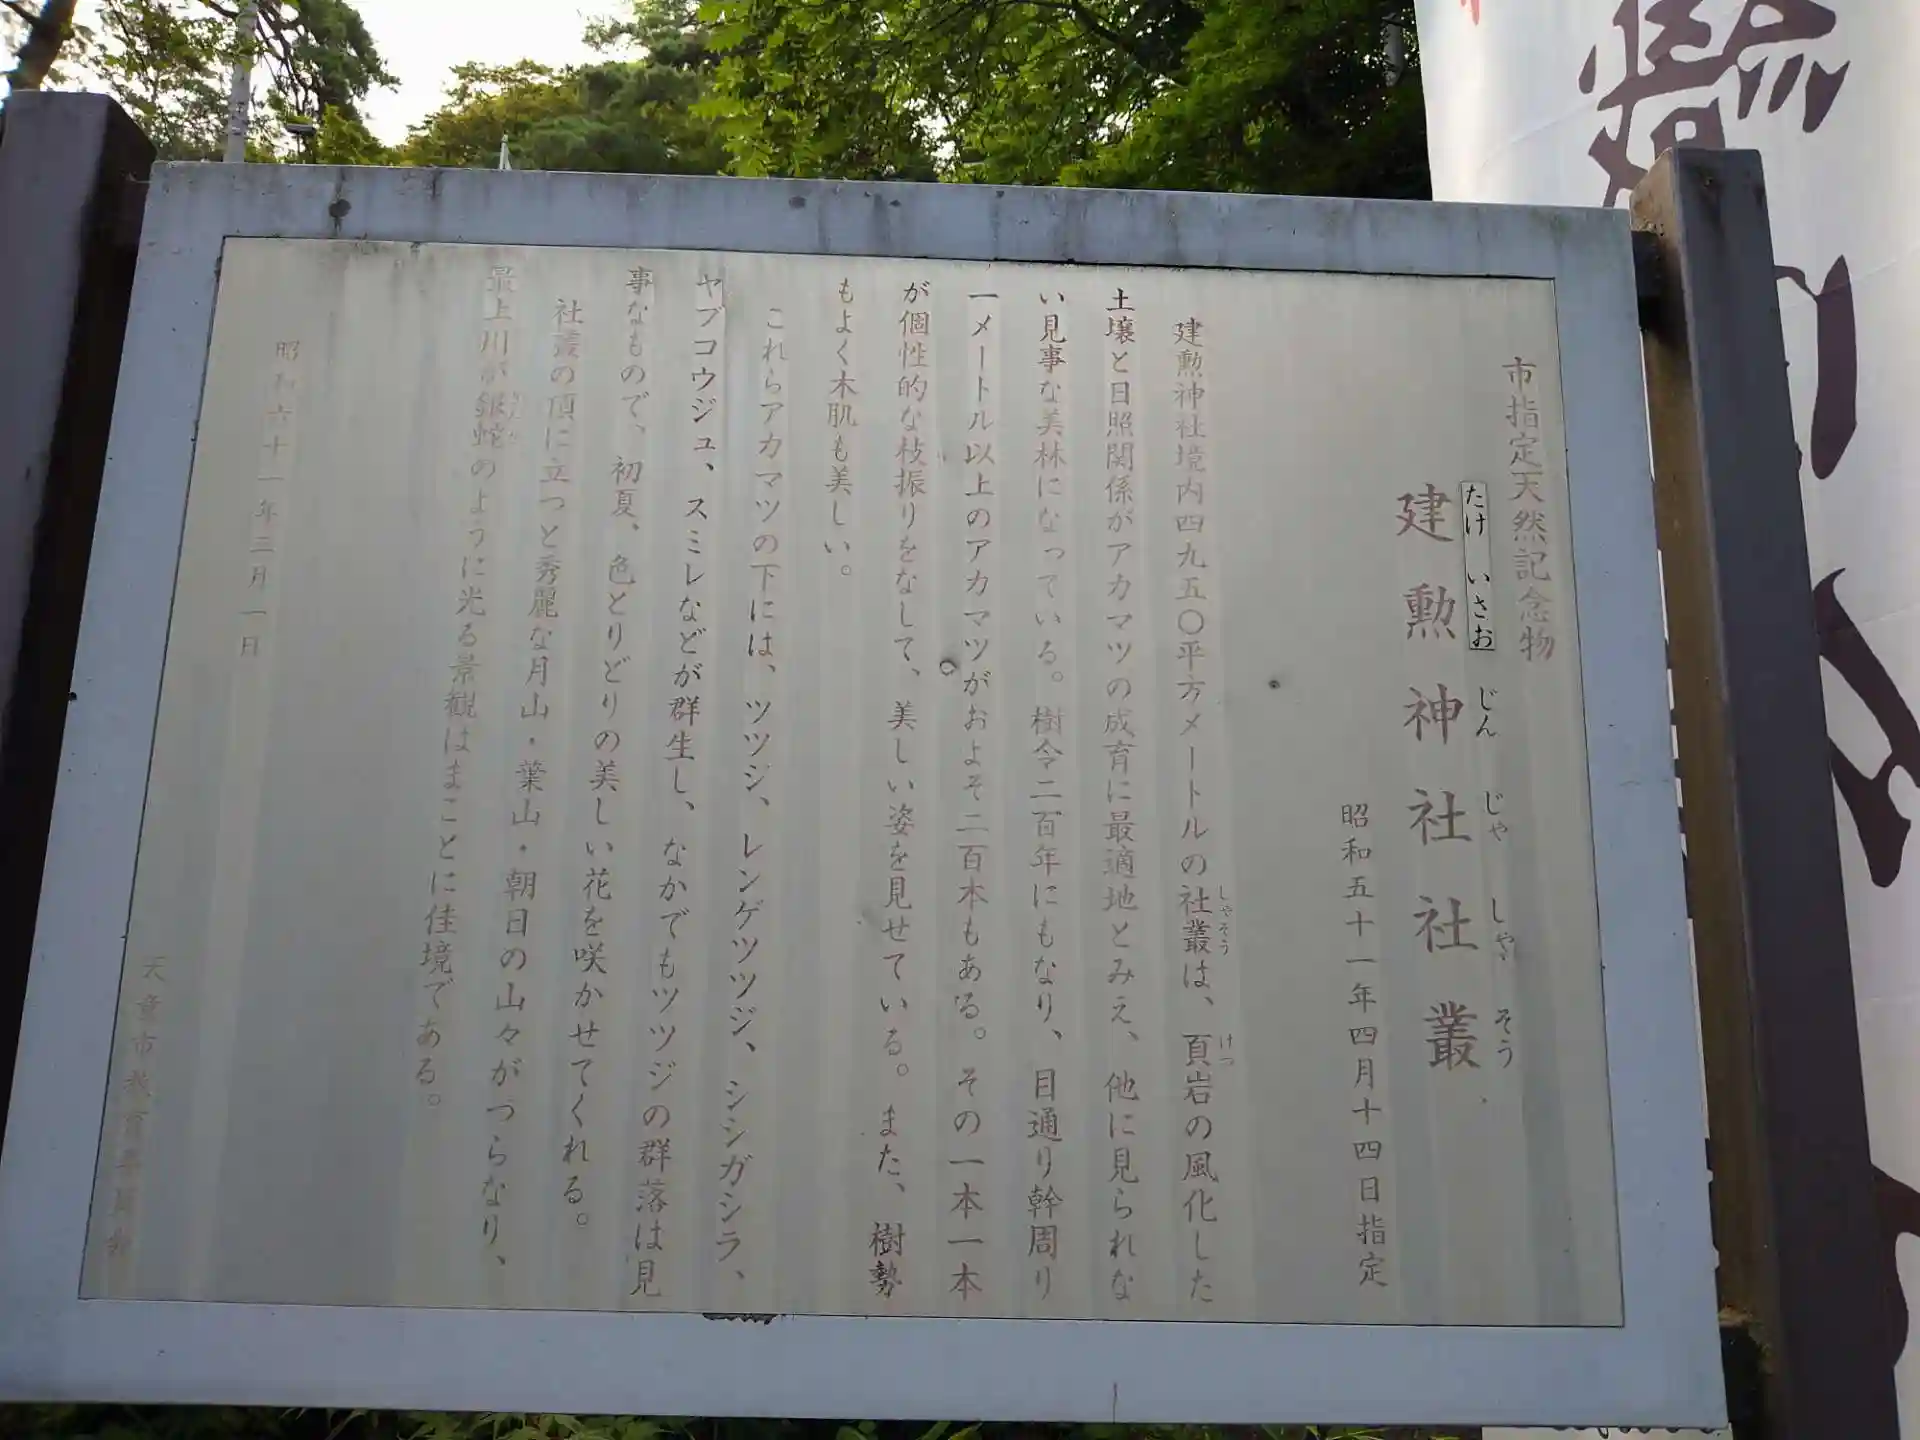 市指定天然記念物
建勲神社社叢
たけ いさお じん じゃ しゃ そう
昭和五十一年四月十四日指定
建勲神社境内四九五〇平方メートルの社叢は、頁岩の風化した
しゃそう
けつ
土壌と日照関係がアカマツの成育に最適地とみえ、他に見られな
い見事な美林になっている。樹令二百年にもなり、目通り幹周り
一メートル以上のアカマツがおよそ二百本もある。その一本一本
が個性的な枝振りをなして、美しい姿を見せている。また、樹勢
もよく木肌も美しい。
これらアカマツの下には、ツツジ、レンゲツツジ、シシガシラ、
ヤブコウジュ、スミレなどが群生し、なかでもツツジの群落は見
事なもので、初夏、色とりどりの美しい花を咲かせてくれる。
社叢の頂に立つと秀麗な月山・葉山・朝日の山々がつらなり、
最上川が銀蛇のように光る景観はまことに佳境である。
昭和六十一年三月一日
天童市教育委員会